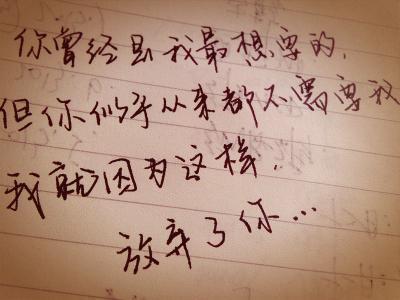 你曾经是我最想要的,
但你似乎从来都不需要我
我就因为这样,
放弃了你…